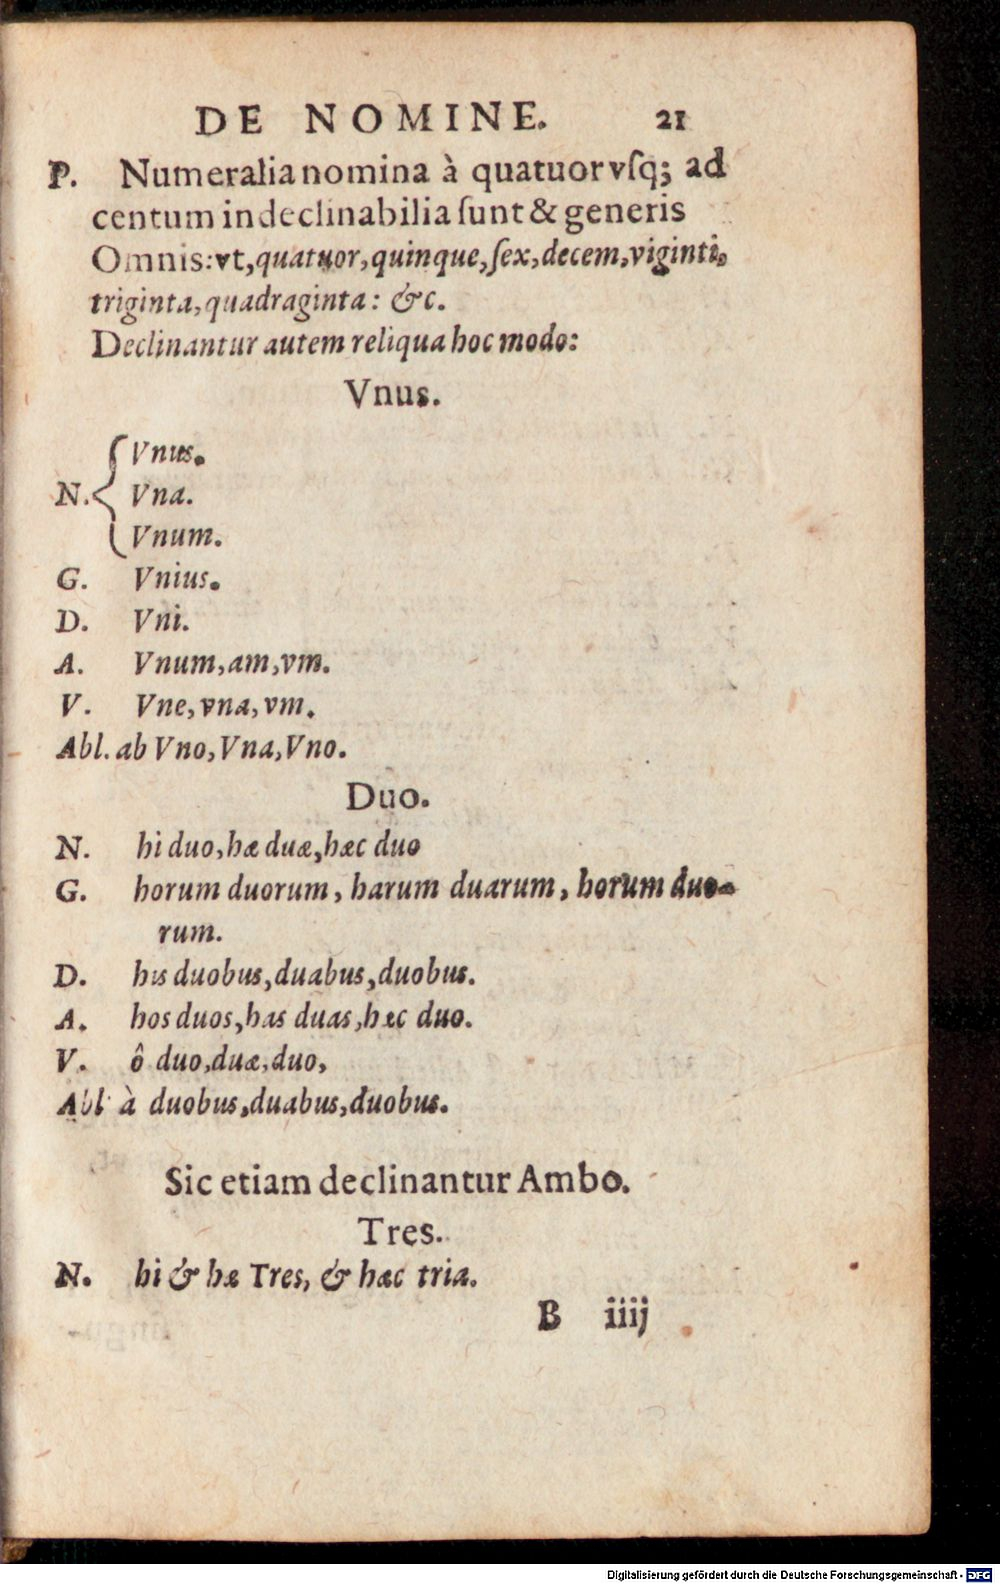 DE NOMINE. 21
P. Numeralia nomina à quatuor vſq; ad
centum indeclinabilia ſunt & generis
Omnis: vt, quatuor, quinque, ſex, decem, viginti,
triginta, quadraginta: &c.
Declinantur autem reliqua hoc modo:
Vnus.
Vnus.
N. Vna.
Vnum.
G. Vnius.
D. Vni.
A. Vnum, am, vm.
V. Vne, vna, vm.
Abl. ab Vno, Vna, Vno.
Duo.
N. hi duo, hæ duæ, hæc duo
G. horum duorum, harum duarum, horum duo-
rum.
D. his duobus, duabus, duobus.
A. hos duos, has duas, hæc duo.
V. ô duo, duæ, duo,
Abl à duobus, duabus, duobus.
Sic etiam declinantur Ambo.
Tres.
N. hi & hæ Tres, & hæc tria.
B iiij
Digitalisierung gefördert durch die Deutsche Forschungsgemeinschaft - DFG